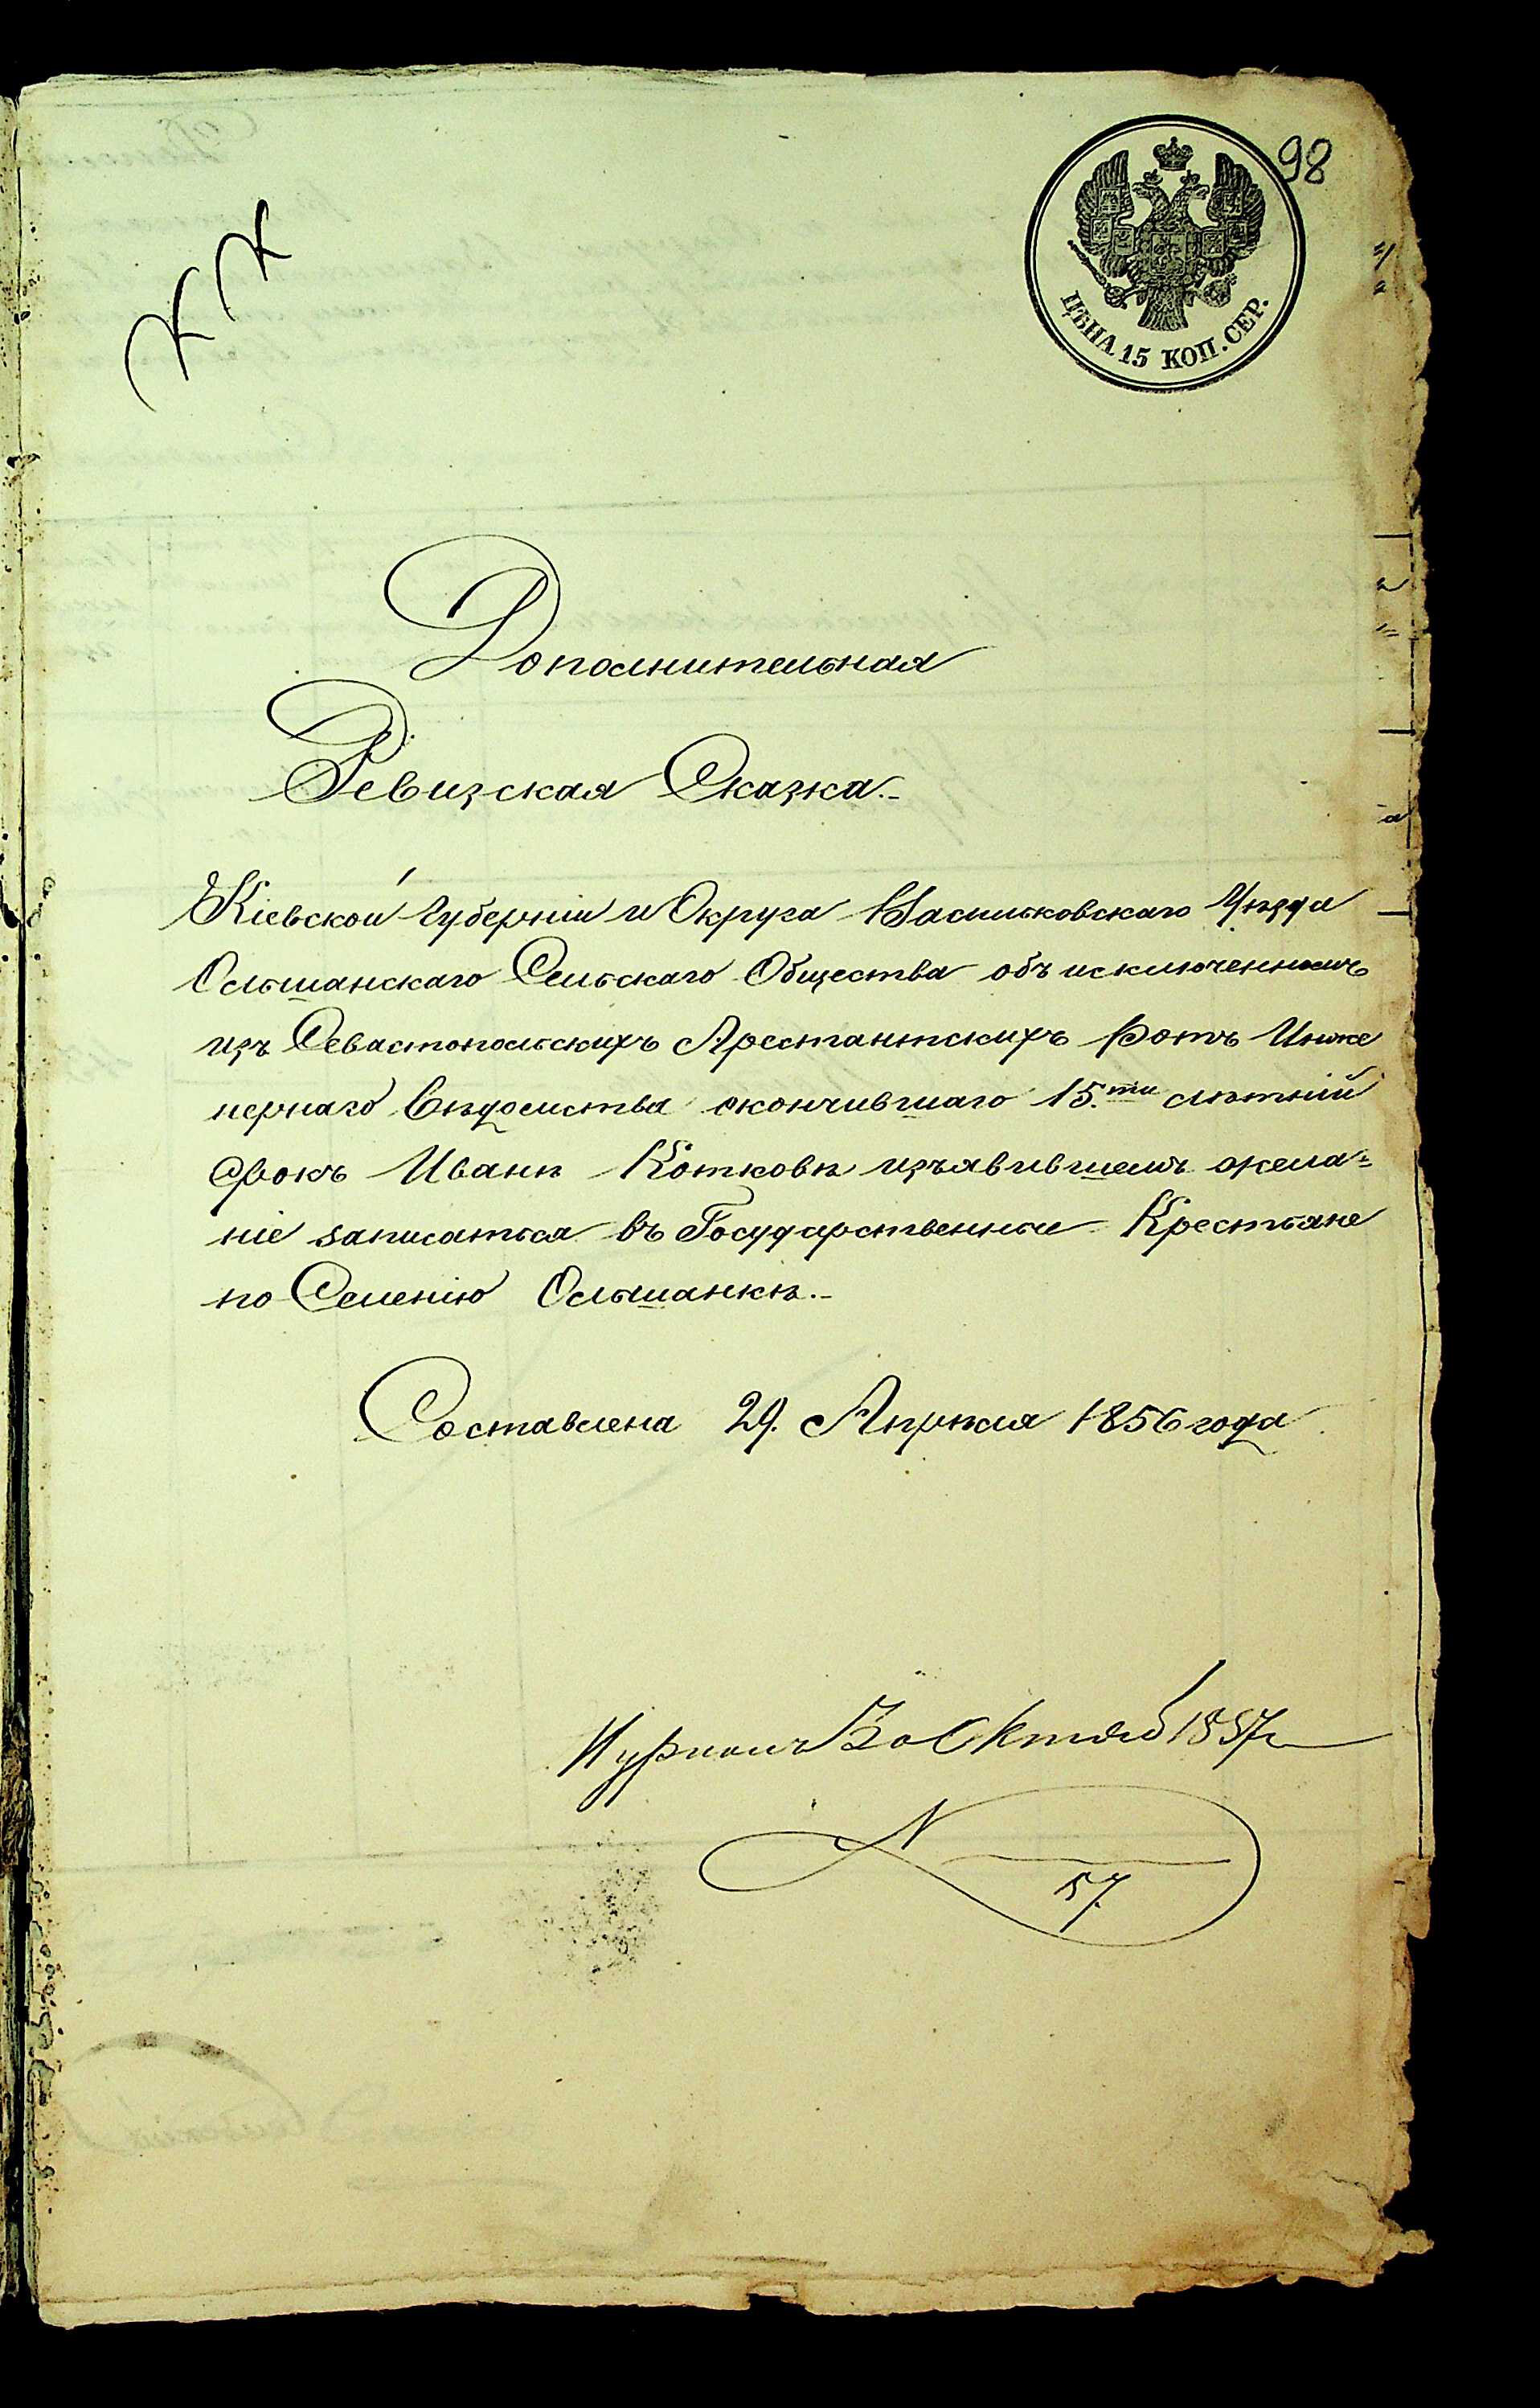 98
ЦѢНА 15 КОП. СЕР.
Дополнительная
Ревизская Сказка.-
Кіевской Губерніи и Округа Васильковскаго Уѣзда
Ольшанскаго Сельскаго Общества объ исключенномъ
изъ Севастопольскихъ Арестантскихъ Ротъ Инже
нернаго Вѣдомства окончившаго 15.ти лѣтній
срокъ Иванѣ Котковѣ изъявившемъ жела=
ніе записаться въ Государственные Крестьяне
по Селенію Ольшанкѣ.-
Составлена 29. Апрѣля 1856 года
Октяб 1857
N
57.